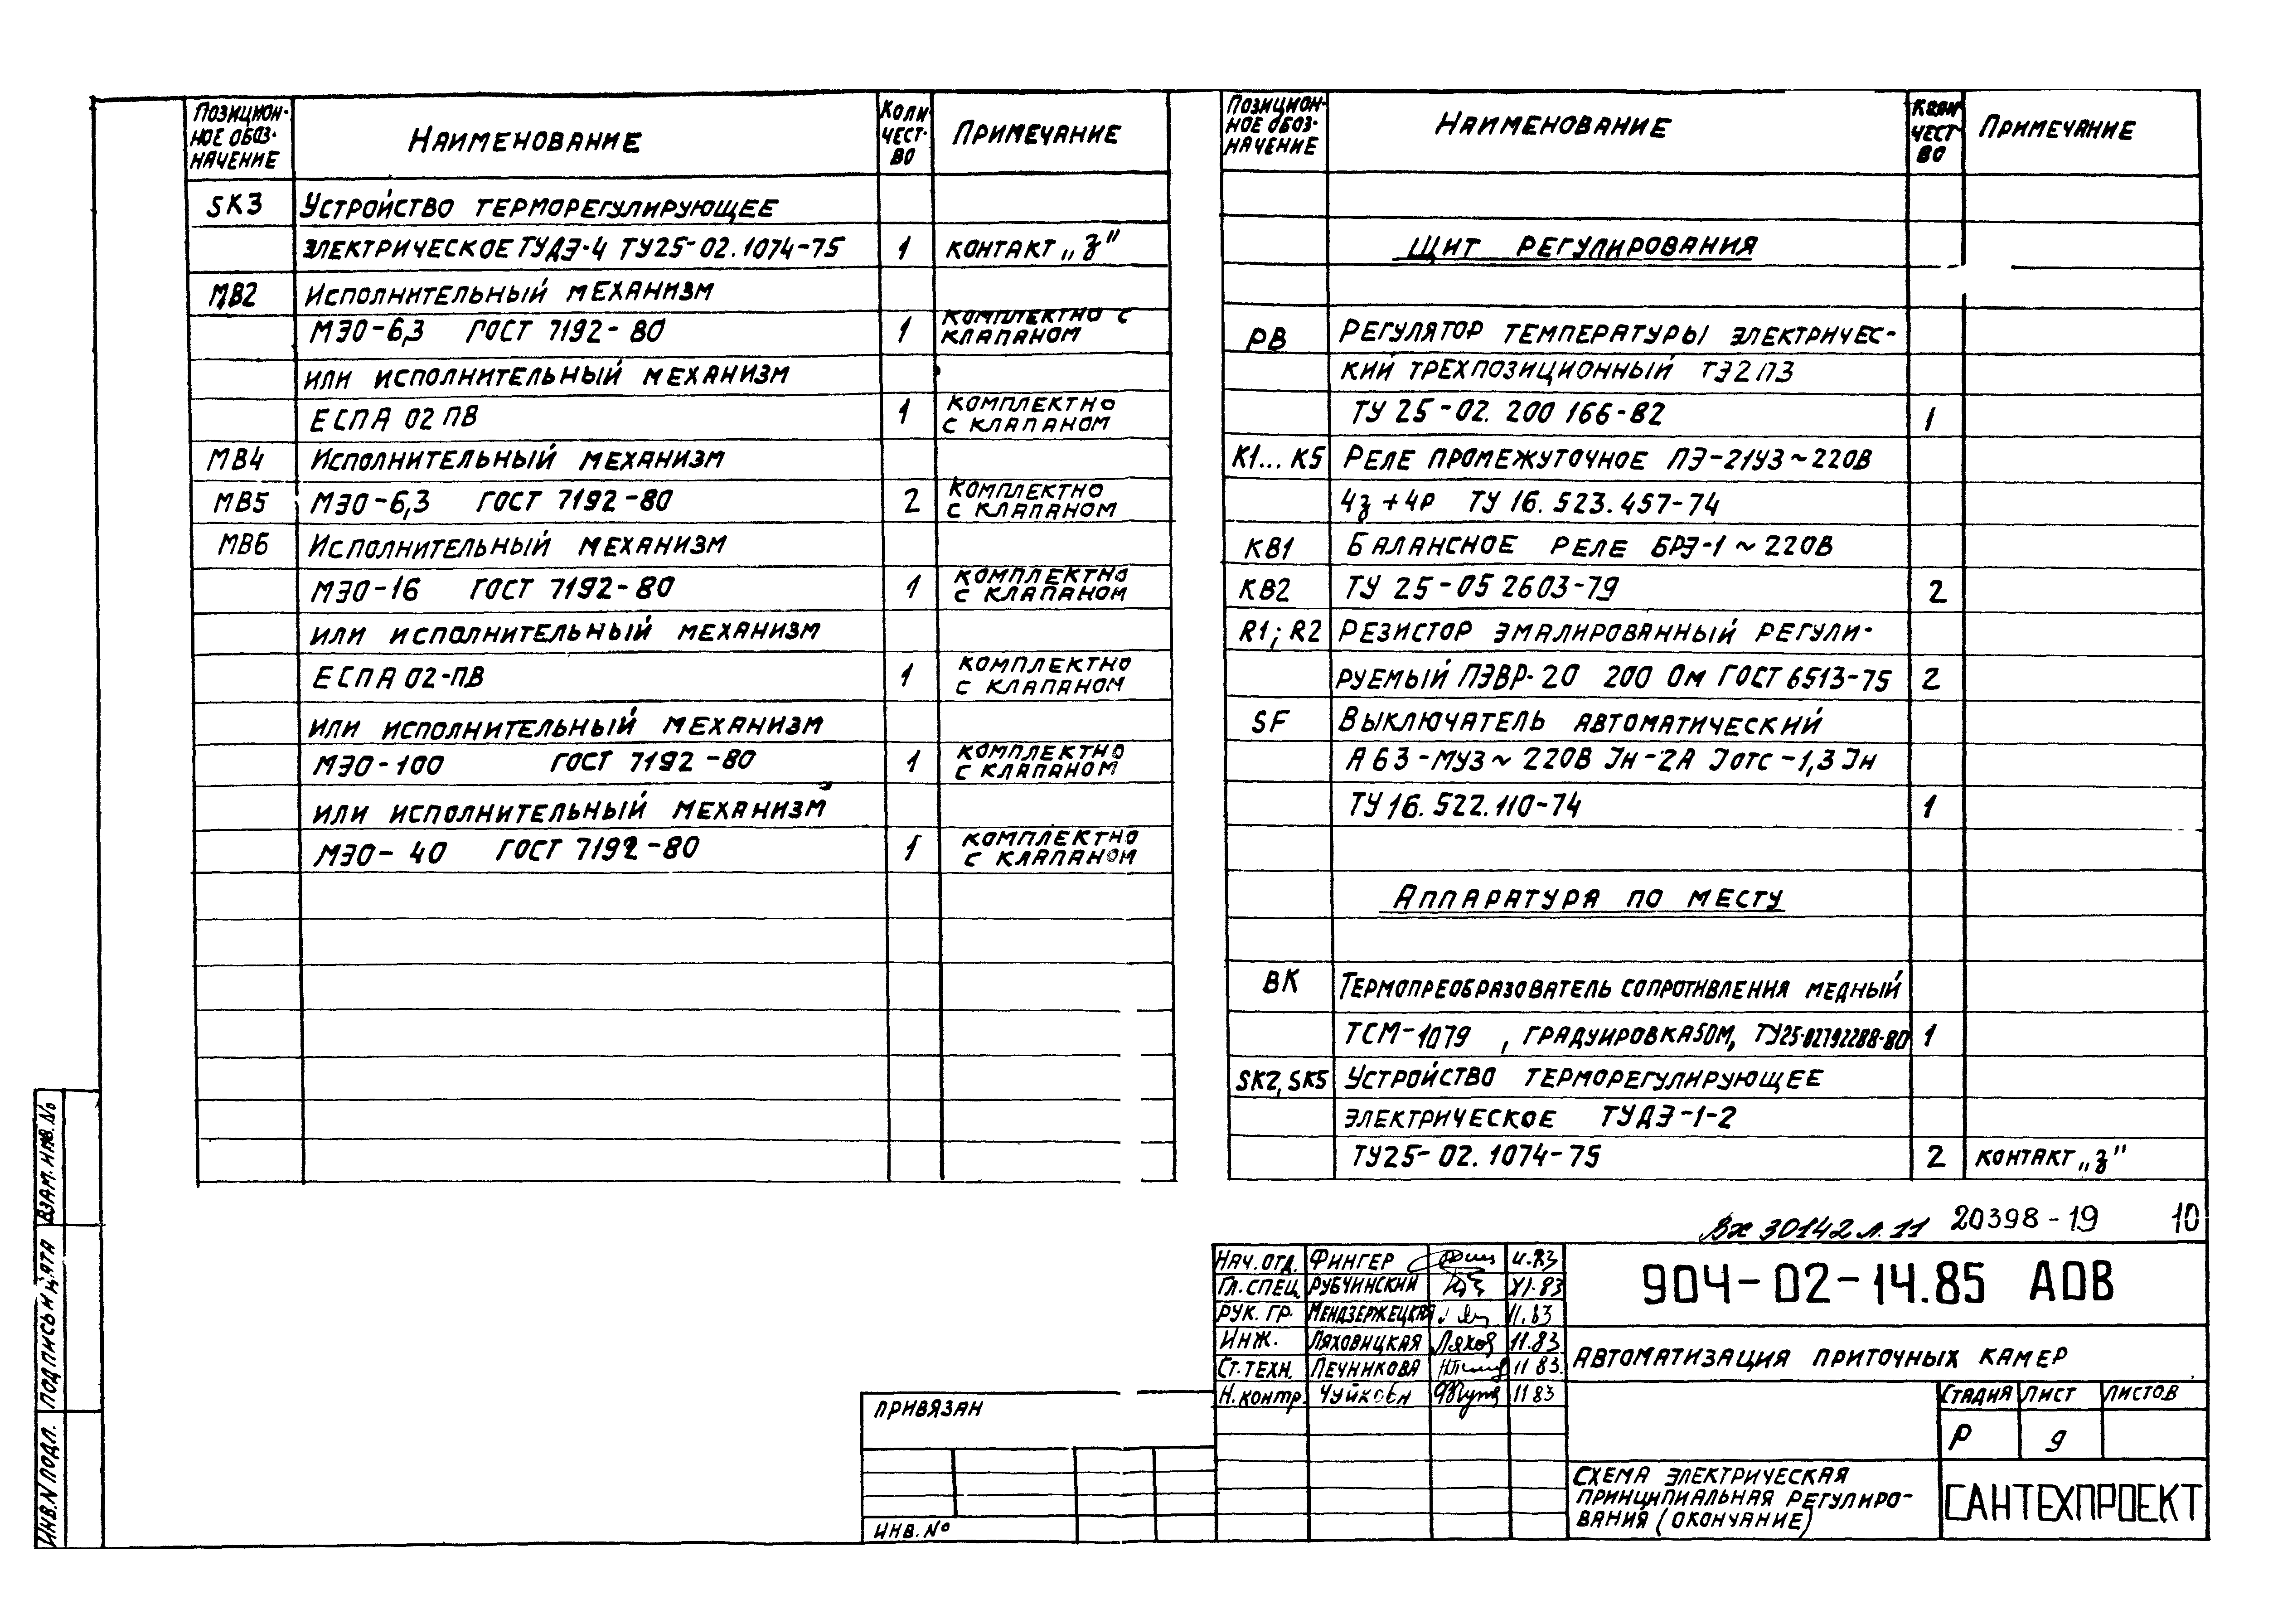 Позицион- Наименование Коли Примечание
ное обоз- чест-
начение во
SK3 Устройство терморегулирующее
электрическое ТУДЭ-4 ТУ25-02.1074-75 1 контакт „з"
МВ2 Исполнительный механизм
МЭО-6,3 ГОСТ 7192-80 1 комплектно с
клапаном
или исполнительный механизм
ЕСПА 02 ПВ 1 комплектно
с клапаном
МВ4 Исполнительный механизм
МВ5 МЭО-6,3 ГОСТ 7192-80 2 комплектно
с клапаном
МВ6 Исполнительный механизм
МЭО-16 ГОСТ 7192-80 1 комплектно
с клапаном
или исполнительный механизм
ЕСПА 02-ПВ 1 комплектно
с клапаном
или исполнительный механизм
МЭО-100 ГОСТ 7192-80 1 комплектно
с клапаном
или исполнительный механизм
МЭО-40 ГОСТ 7192-80 1 комплектно
с клапаном
Позицион- Наименование Примечание
ное обоз- чест
начение во
Щит регулирования
РВ Регулятор температуры электричес-
кий трехпозиционный ТЭ2П3
ТУ 25-02. 200 166-82 1
К1...К5 Реле промежуточное ПЭ-21У3 ~ 220В
4з + 4р ТУ 16. 523. 457-74
КВ1 Балансное реле БРЭ-1 ~ 220В
КВ2 ТУ 25-05 2603-79 2
R1; R2 Резистор эмалированный регули-
руемый ПЭВР-20 200 Ом ГОСТ 6513-75 2
SF Выключатель автоматический
А63-МУ3 ~ 220В Jн-2А Jотс-1,3 Jн
ТУ 16. 522. 110-74 1
Аппаратура по месту
ВК Термопреобразователь сопротивления медный
ТСМ-1079 , градуировка 50М, ТУ25-02792288-80 1
SK2, SK5 Устройство терморегулирующее
электрическое ТУДЭ-1-2
ТУ25-02. 1074-75 2 контакт „з"
Вх 30142 л. 11 20398-19 10
Нач. отд. Фингер 11.83
Гл. спец. Рубчинский XI.83
Рук. гр. Мендзержецкая 11.83
Инж. Ляховицкая Ляхов 11.83
Ст. техн. Печникова 11 83.
Н. контр. 11 83
904-02-14.85 АОВ
Автоматизация приточных камер
Стадия Лист Листов
Р 9
Схема электрическая
принципиальная регулиро-
вания (окончание)
САНТЕХПРОЕКТ
Привязан
Инв. №
Взам. инв. №
Подпись и дата
Инв. N подл.